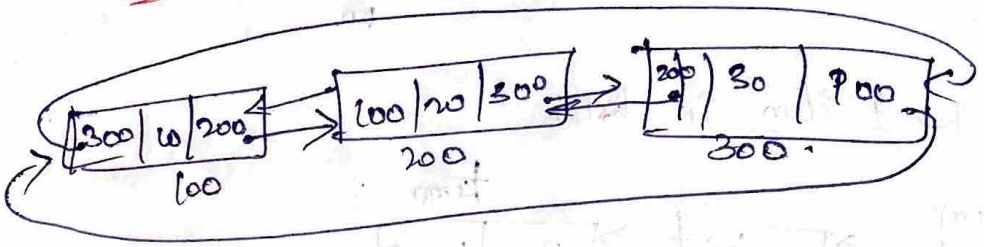 300 | 10 | 200
100
100 | 20 | 300
200.
200 | 30 | 100
300.